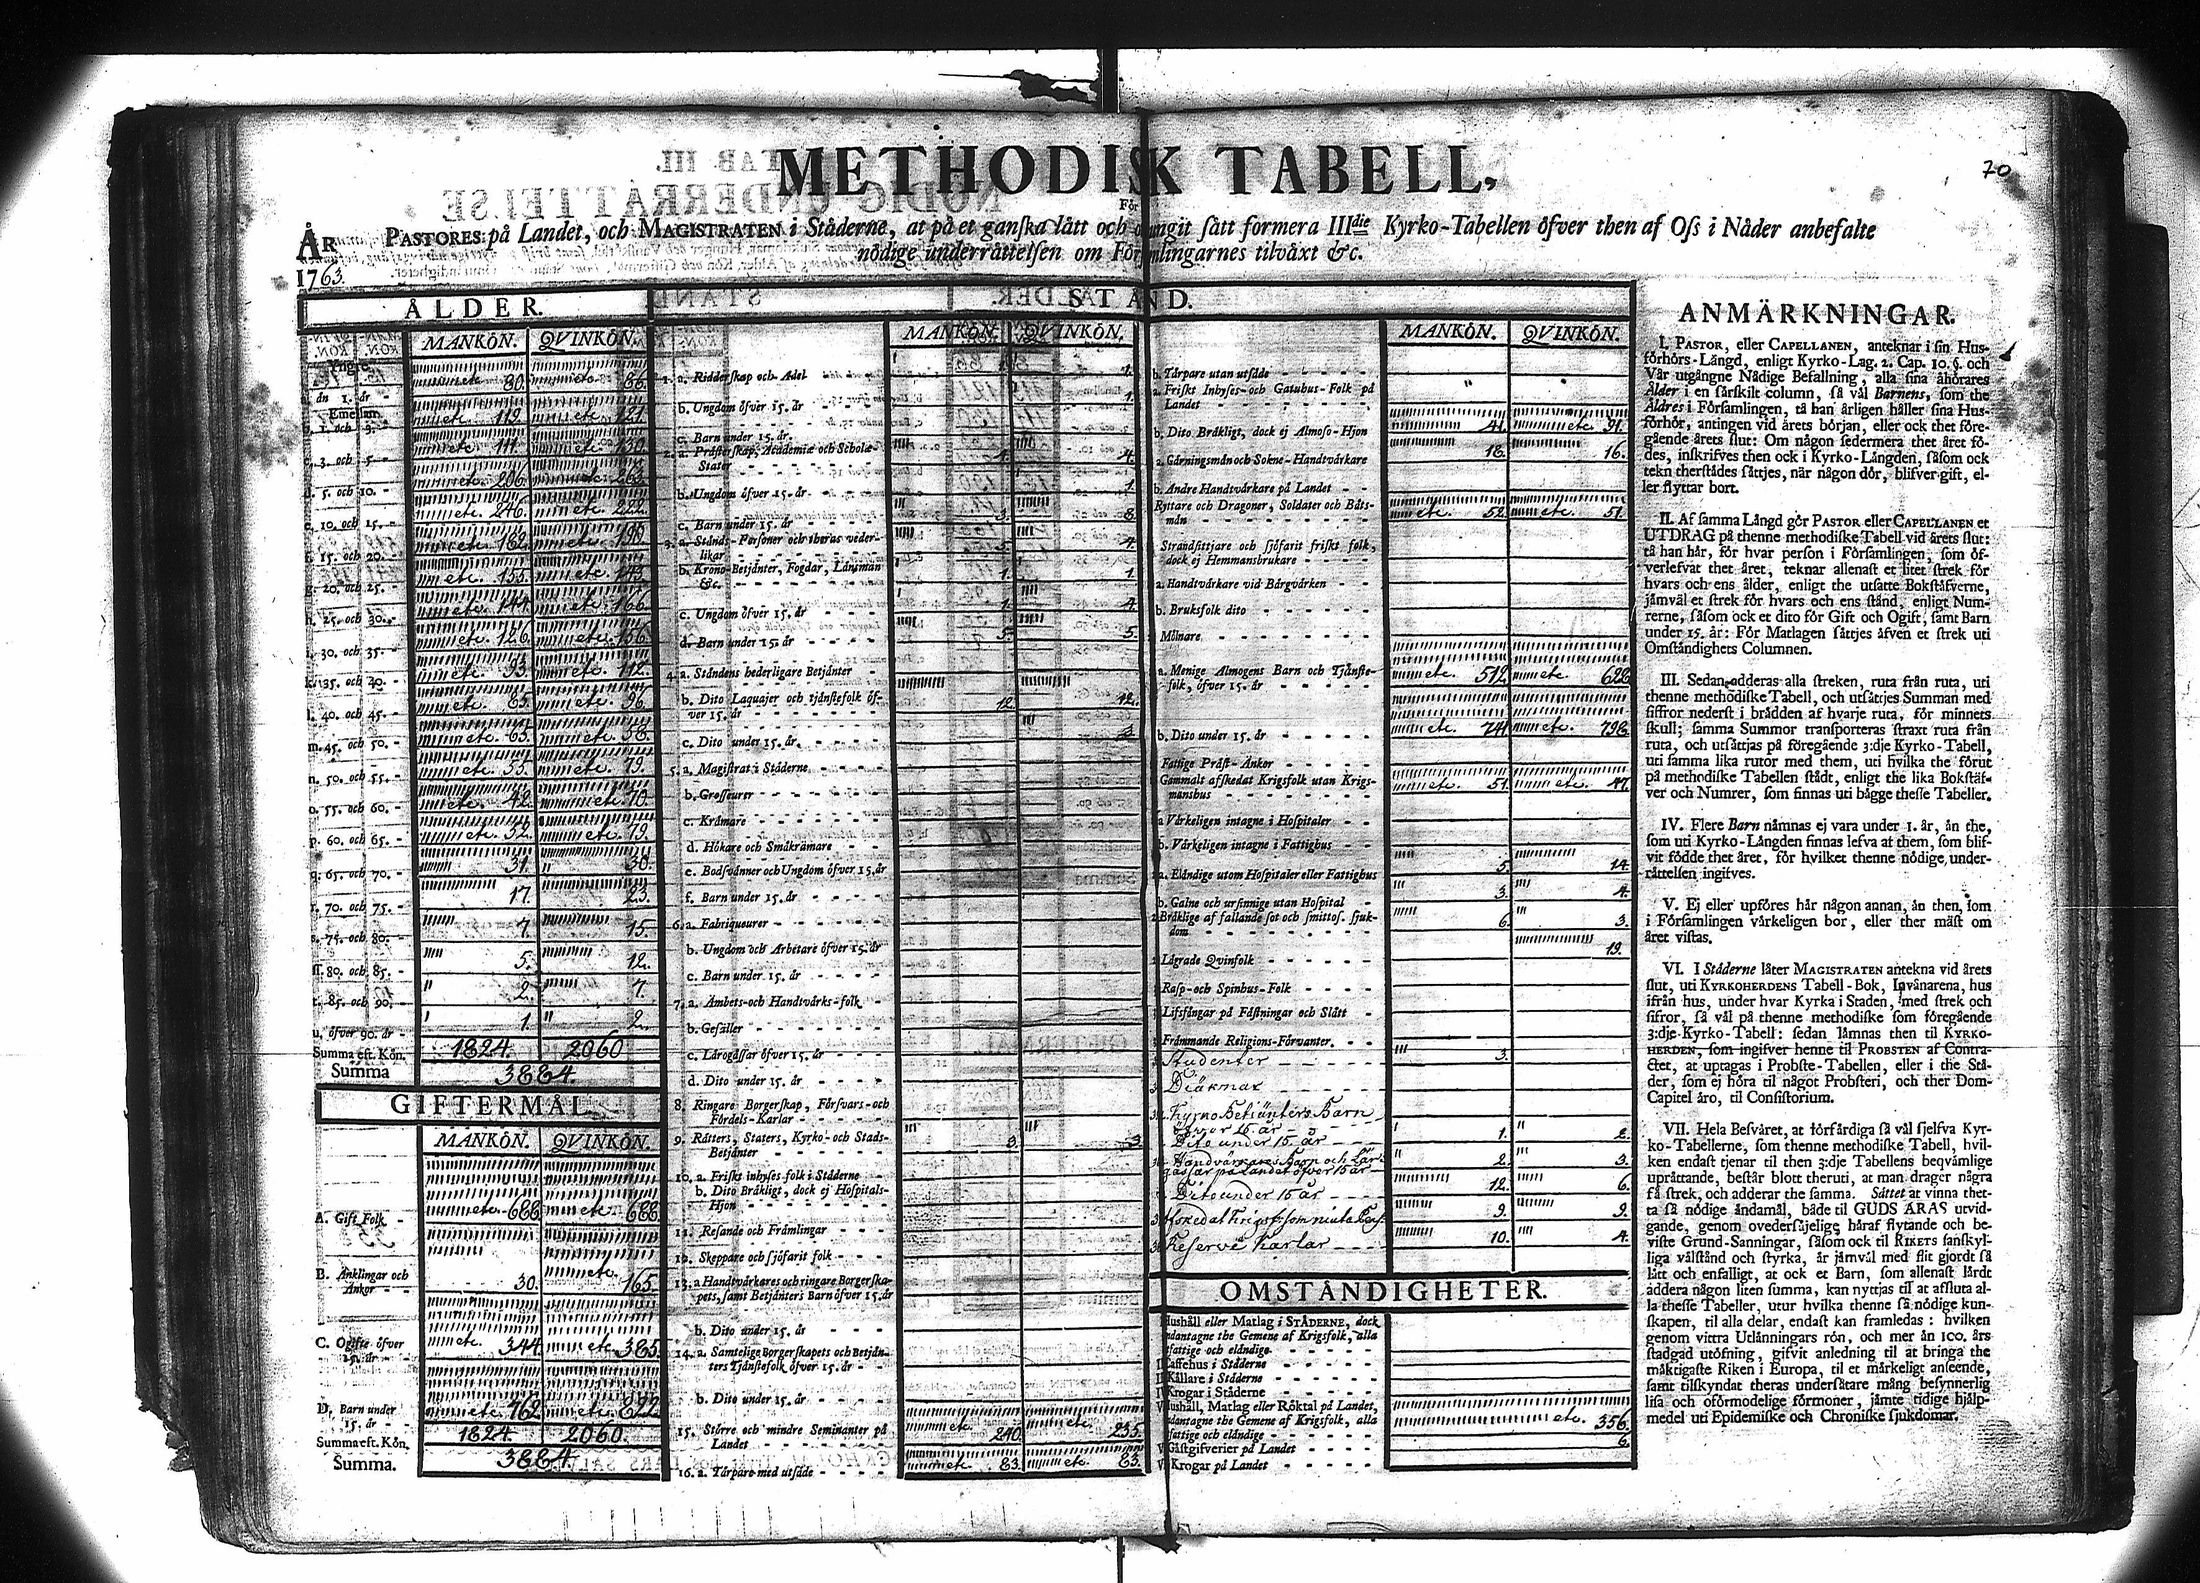 METHODISK TABELL,
70
För
ÅR PASTORES på Landet, och MAGISTRATEN i Städerne, at på et ganska lått och otvungit sått formera IIIdie Kyrko-Tabellen öfver then af Oss i Nåder anbefalte
nödige underråttelsen om Församlingarnes tilväxt &c.
1763.
ÅLDER.
MANKÖN. QVINKÖN.
Yngre
än 1. år 80. 86.
Emellan
b. 1. och 3. etc. 119. etc. 121.
c. 3. och 5. etc. 111. etc. 130.
d. 5. och 10. etc. 206. etc. 263.
e. 10. och 15. etc. 246. etc. 222.
f. 15. och 20. etc. 182. etc. 190.
g. 20. och 25. etc. 155. etc. 143.
h. 25. och 30. etc. 144. etc. 166.
i. 30. och 35. etc. 126. etc. 156.
k. 35. och 40. etc. 93. etc. 112.
l. 40. och 45. etc. 85. etc. 96.
m. 45. och 50. etc. 65. etc. 58.
n. 50. och 55. etc. 55. etc. 79.
o. 55. och 60. etc. 42. etc. 70.
p. 60. och 65. etc. 52. etc. 79.
q. 65. och 70. 31. 30.
r. 70. och 75. 17. 23.
s. 75. och 80. 7. 15.
ss. 80. och 85. 5. 12.
t. 85. och 90. 2. 7.
u. öfver 90. år 1. 2.
Summa eft. Kön. 1824. 2060
Summa 3884.
GIFTERMÅL
MANKÖN. QVINKÖN.
A. Gift Folk etc. 688. etc. 688.
B. Änklingar och
Änkor 30. etc. 165.
C. Ogifte öfver
15. år etc. 344. etc. 385.
D. Barn under
15. år etc. 762. etc. 822.
Summa eft. Kön. 1824. 2060.
Summa. 3884.
STÅND.
MANKÖN. QVINKÖN.
1. a. Ridderskap och Adel 1.
b. Ungdom öfver 15. år 1.
c. Barn under 15. år.
2. a. Pråsterskap, Academiæ och Scholæ-
Stater 4. 4.
b. Ungdom öfver 15. år 1.
c. Barn under 15. år 3. 8.
3. a. Stånds-Personer och theras veder-
likar 5. 4.
b. Krono-Betjänter, Fogdar, Länsmän
&c. 1. 1.
c. Ungdom öfver 15. år 1. 4.
d. Barn under 15. år 5. 5.
4. a. Ståndens hederligare Betjänter
b. Dito Laquajer och tjänstefolk öf-
ver 15. år 12. 12.
c. Dito under 15. år. 3.
5. a. Magistrat i Städerne
b. Grosseurer
c. Krämare
d. Hökare och Småkrämare
e. Bodsvänner och Ungdom öfver 15. år
f. Barn under 15. år
6. a. Fabriqueurer
b. Ungdom och Arbetare öfver 15. år
c. Barn under 15. år
7. a. Ämbets- och Handtvärks-folk
b. Gesäller
c. Lärogåssar öfver 15. år
d. Dito under 15. år
8. Ringare Borgerskap, Försvars- och
Fördels-Karlar
9. Råtters, Staters, Kyrko- och Stads-
Betjänter 3. 3.
10. a. Friskt inhyses folk i Städerne
b. Dito Bråkligt, dock ej Hospitals-
Hjon
11. Resande och Främlingar
12. Skeppare och sjöfarit folk
13. a Handtvärkares och ringare Borgerska-
pets, samt Betjänters Barn öfver 15. år
b. Dito under 15. år
14. a. Samtelige Borgerskapets och Betjän-
ters Tjänstefolk öfver 15. år
b. Dito under 15. år
15. Större och mindre Seminanter på
Landet etc. 240. etc. 235.
16. a. Tårpare med utsäde etc. 83. etc. 83.
MANKÖN. QVINKÖN.
b. Tårpare utan utsäde
a. Friskt Inhyses- och Gatuhus-Folk på
Landet
b. Dito Bråkligt, dock ej Almoso-Hjon 41. etc. 91.
a. Gärningsmän och Sokne-Handtvärkare 18. 16.
b. Andre Handtvärkare på Landet
Ryttare och Dragoner, Soldater och Båts-
män etc. 52. etc. 51.
Strandsittjare och sjöfarit friskt folk,
dock ej Hemmansbrukare
a. Handtvärkare vid Bärgvärken
b. Bruksfolk dito
Mölnare
a. Menige Almogens Barn och Tjänste-
folk, öfver 15. år etc. 512. etc. 628.
b. Dito under 15. år etc. 741. etc. 798.
Fattige Präst-Änkor
Gammalt afskedat Krigsfolk utan Krigs-
manshus etc. 51. etc. 47.
a Värkeligen intagne i Hospitaler
b. Värkeligen intagne i Fattighus
a. Eländige utom Hospitaler eller Fattighus 5. 14.
b. Galne och ursinnige utan Hospital 3. 4.
Bråklige af fallande sot och smittos. sjuk-
dom 6. 3.
Lägrade Qvinfolk 19.
Rasp- och Spinhus-Folk
Lifsfångar på Fästningar och Slått
Främmande Religions-Förvanter.
Studenter 3.
Diäknar
Kyrko Betjänters Barn
öfver 15 år
Dito under 15 år 1. 2.
Handvärkares Barn och Lär-
gåssar på Landet öfver 15 år 2. 3.
Dito under 15 år 12. 6.
Afskedat Krigsf: som niuta 9. 9.
Reserve Karlar 10. 4.
OMSTÅNDIGHETER.
Hushåll eller Matlag i STÅDERNE, dock
undantagne the Gemene af Krigsfolk, alla
fattige och eländige
Caffehus i Städerne
Källare i Städerne
Krogar i Städerne
Hushåll, Matlag eller Röktal på Landet,
undantagne the Gemene af Krigsfolk, alla
fattige och eländige etc. 356.
Gästgifverier på Landet 6.
Krogar på Landet
ANMÄRKNINGAR.
I. PASTOR, eller CAPELLANEN, anteknar i sin Hus-
förhörs-Längd, enligt Kyrko-Lag. 2. Cap. 10. §. och
Vår utgångne Nådige Befallning, alla sina åhörares
Ålder i en särskilt column, så väl Barnens, som the
Äldres i Församlingen, tå han årligen håller sina Hus-
förhör, antingen vid årets början, eller ock thet före-
gående årets slut: Om någon sedermera thet året fö-
des, inskrifves then ock i Kyrko-Längden, såsom ock
tekn therstädes såttjes, när någon dör, blifver gift, el-
ler flyttar bort.
II. Af samma Längd gör PASTOR eller CAPELLANEN et
UTDRAG på thenne methodiske Tabell vid årets slut:
tå han här, för hvar person i Församlingen, som öf-
verlefvat thet året, teknar allenast et litet strek för
hvars och ens ålder, enligt the utsatte Bokstäfverne,
jämväl et strek för hvars och ens stånd, enligt Num-
rerne, såsom ock et dito för Gift och Ogift, samt Barn
under 15. år: För Matlagen såttjes äfven et strek uti
Omständighets Columnen.
III. Sedan adderas alla streken, ruta från ruta, uti
thenne methodiske Tabell, och utsåttjes Summan med
siffror nederst i brädden af hvarje ruta, för minnets
skull; samma Summor transporteras straxt ruta från
ruta, och utsåttjas på föregående 3:dje Kyrko-Tabell,
uti samma lika rutor med them, uti hvilka the förut
på methodiske Tabellen stådt, enligt the lika Bokstäf-
ver och Numrer, som finnas uti bägge thesse Tabeller.
IV. Flere Barn nämnas ej vara under 1. år, än the,
som uti Kyrko-Längden finnas lefva af them, som blif-
vit födde thet året, för hvilket thenne nödige under-
råttelsen ingifves.
V. Ej eller upföres här någon annan, än then, som
i Församlingen värkeligen bor, eller ther mäst om
året vistas.
VI. I Städerne låter MAGISTRATEN antekna vid årets
slut, uti KYRKOHERDENS Tabell-Bok, Invånarena, hus
ifrån hus, under hvar Kyrka i Staden, med strek och
sifror, så väl på thenne methodiske som föregående
3:dje Kyrko-Tabell: sedan lämnas then til KYRKO-
HERDEN, som ingifver henne til PROBSTEN af Contra-
ctet, at uptagas i Probste-Tabellen, eller i the Stä-
der, som ej höra til något Probsteri, och ther Dom-
Capitel äro, til Consistorium.
VII. Hela Besväret, at förfärdiga så väl sjelfva Kyr-
ko-Tabellerne, som thenne methodiske Tabell, hvil-
ken endast tjenar til then 3:dje Tabellens beqvämlige
upråttande, består blott theruti, at man drager några
få strek, och adderar the samma. Såttet at vinna thet-
ta så nödige ändamål, både til GUDS ÄRAS utvid-
gande, genom ovedersäjelige häraf flytande och be-
viste Grund-Sanningar, såsom ock til RIKETS sanskyl-
liga välstånd och styrka, är jämväl med flit gjordt så
lått och enfalligt, at ock et Barn, som allenast lärdt
addera någon liten summa, kan nyttjas til at afsluta al-
la thesse Tabeller, utur hvilka thenne så nödige kun-
skapen, til alla delar, endast kan framledas: hvilken
genom vittra Utlänningars rön, och mer än 100. års
stadgad utöfning, gifvit anledning til at bringa the
mäktigaste Riken i Europa, til et märkeligt anseende,
samt tilskyndat theras undersåtare mång besynnerlig
lisa och oförmodelige förmoner, jämte tidige hjälp-
medel uti Epidemiske och Chroniske sjukdomar.